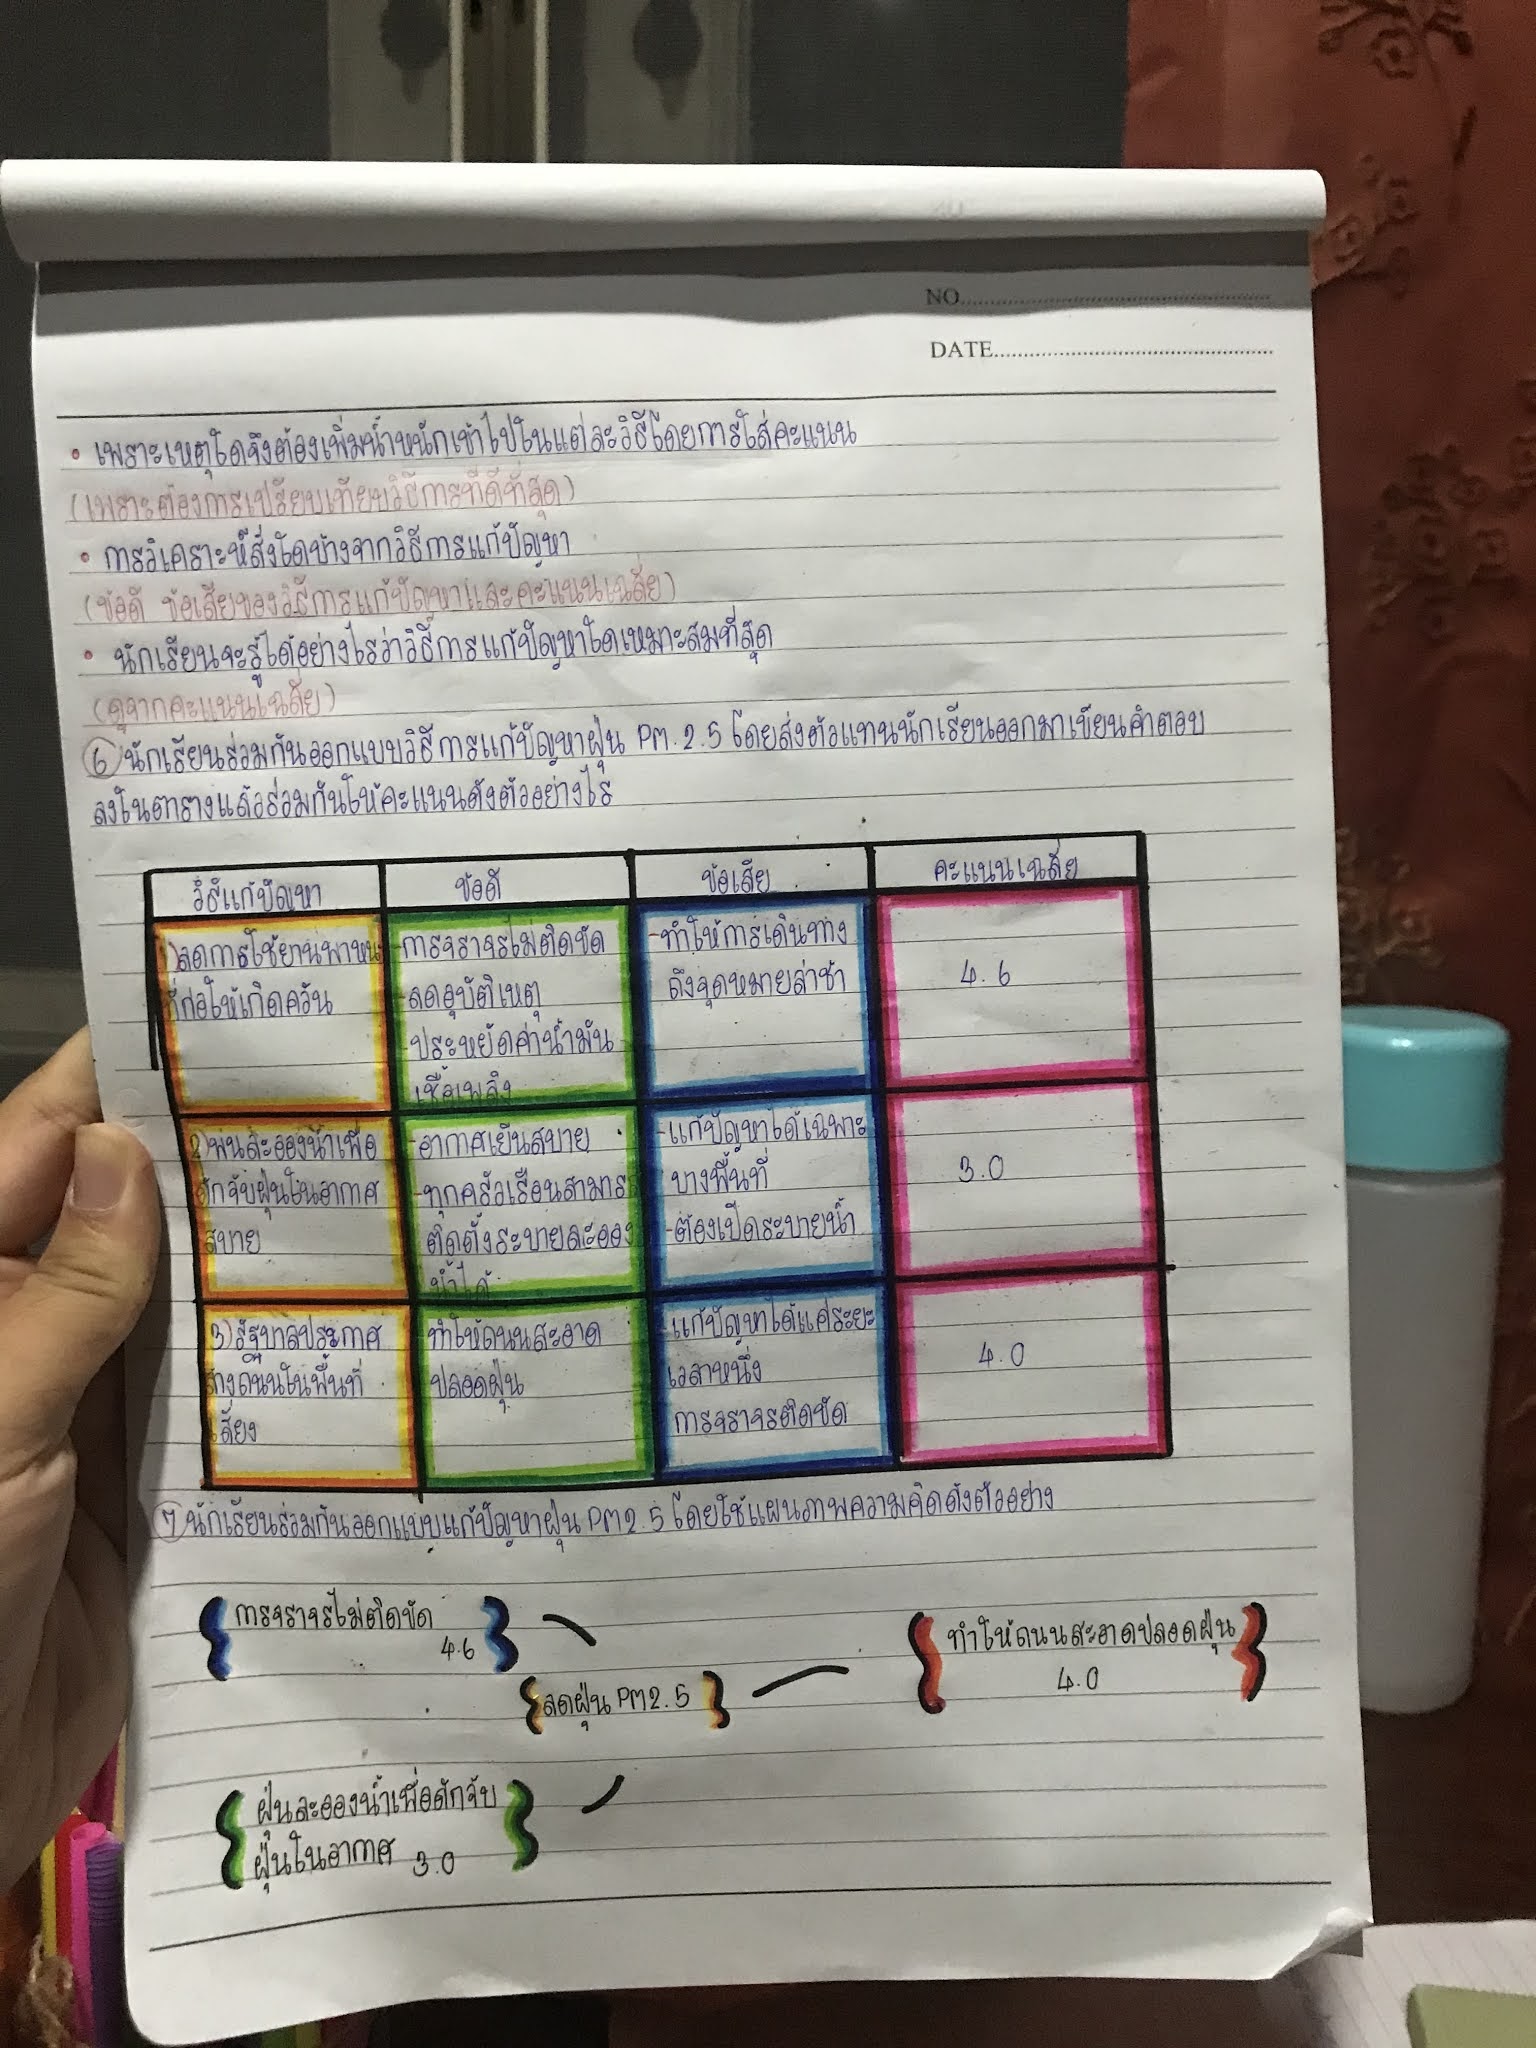 NO.
DATE
• เพราะเหตุใดจึงต้องเพิ่มน้ำหนักเข้าไปในแต่ละวิธีโดยการใส่คะแนน
(เพราะต้องการเปรียบเทียบวิธีการที่ดีที่สุด)
• การวิเคราะห์สิ่งใดบ้างจากวิธีการแก้ปัญหา
(ข้อดี ข้อเสียของวิธีการแก้ปัญหาและคะแนนเฉลี่ย)
• นักเรียนจะรู้ได้อย่างไรว่าวิธีการแก้ปัญหาใดเหมาะสมที่สุด
(ดูจากคะแนนเฉลี่ย)
⑥ นักเรียนร่วมกันออกแบบวิธีการแก้ปัญหาฝุ่น PM.2.5 โดยส่งตัวแทนนักเรียนออกมาเขียนคำตอบ
ลงในตารางแล้วร่วมกันให้คะแนนดังตัวอย่างไร
วิธีแก้ปัญหา ข้อดี ข้อเสีย คะแนนเฉลี่ย
1)ลดการใช้ยานพาหนะ
ที่ก่อให้เกิดควัน
-การจราจรไม่ติดขัด
-ลดอุบัติเหตุ
-ประหยัดค่าน้ำมัน
เชื้อเพลิง
-ทำให้การเดินทาง
ถึงจุดหมายล่าช้า
4.6
2)พ่นละอองน้ำเพื่อ
ดักจับฝุ่นในอากาศ
สบาย
-อากาศเย็นสบาย
-ทุกครัวเรือนสามารถ
ติดตั้งระบายละออง
น้ำได้
-แก้ปัญหาได้เฉพาะ
บางพื้นที่
-ต้องเปิดระบายน้ำ
3.0
3)รัฐบาลประกาศ
ล้างถนนในพื้นที่
เสี่ยง
ทำให้ถนนสะอาด
ปลอดฝุ่น
-แก้ปัญหาได้แค่ระยะ
เวลาหนึ่ง
การจราจรติดขัด
4.0
⑦ นักเรียนร่วมกันออกแบบแก้ปัญหาฝุ่น PM2.5 โดยใช้แผนภาพความคิดดังตัวอย่าง
{การจราจรไม่ติดขัด
4.6}
{ทำให้ถนนสะอาดปลอดฝุ่น
4.0}
{ลดฝุ่น PM2.5}
{ฝุ่นละอองน้ำเพื่อดักจับ
ฝุ่นในอากาศ 3.0}